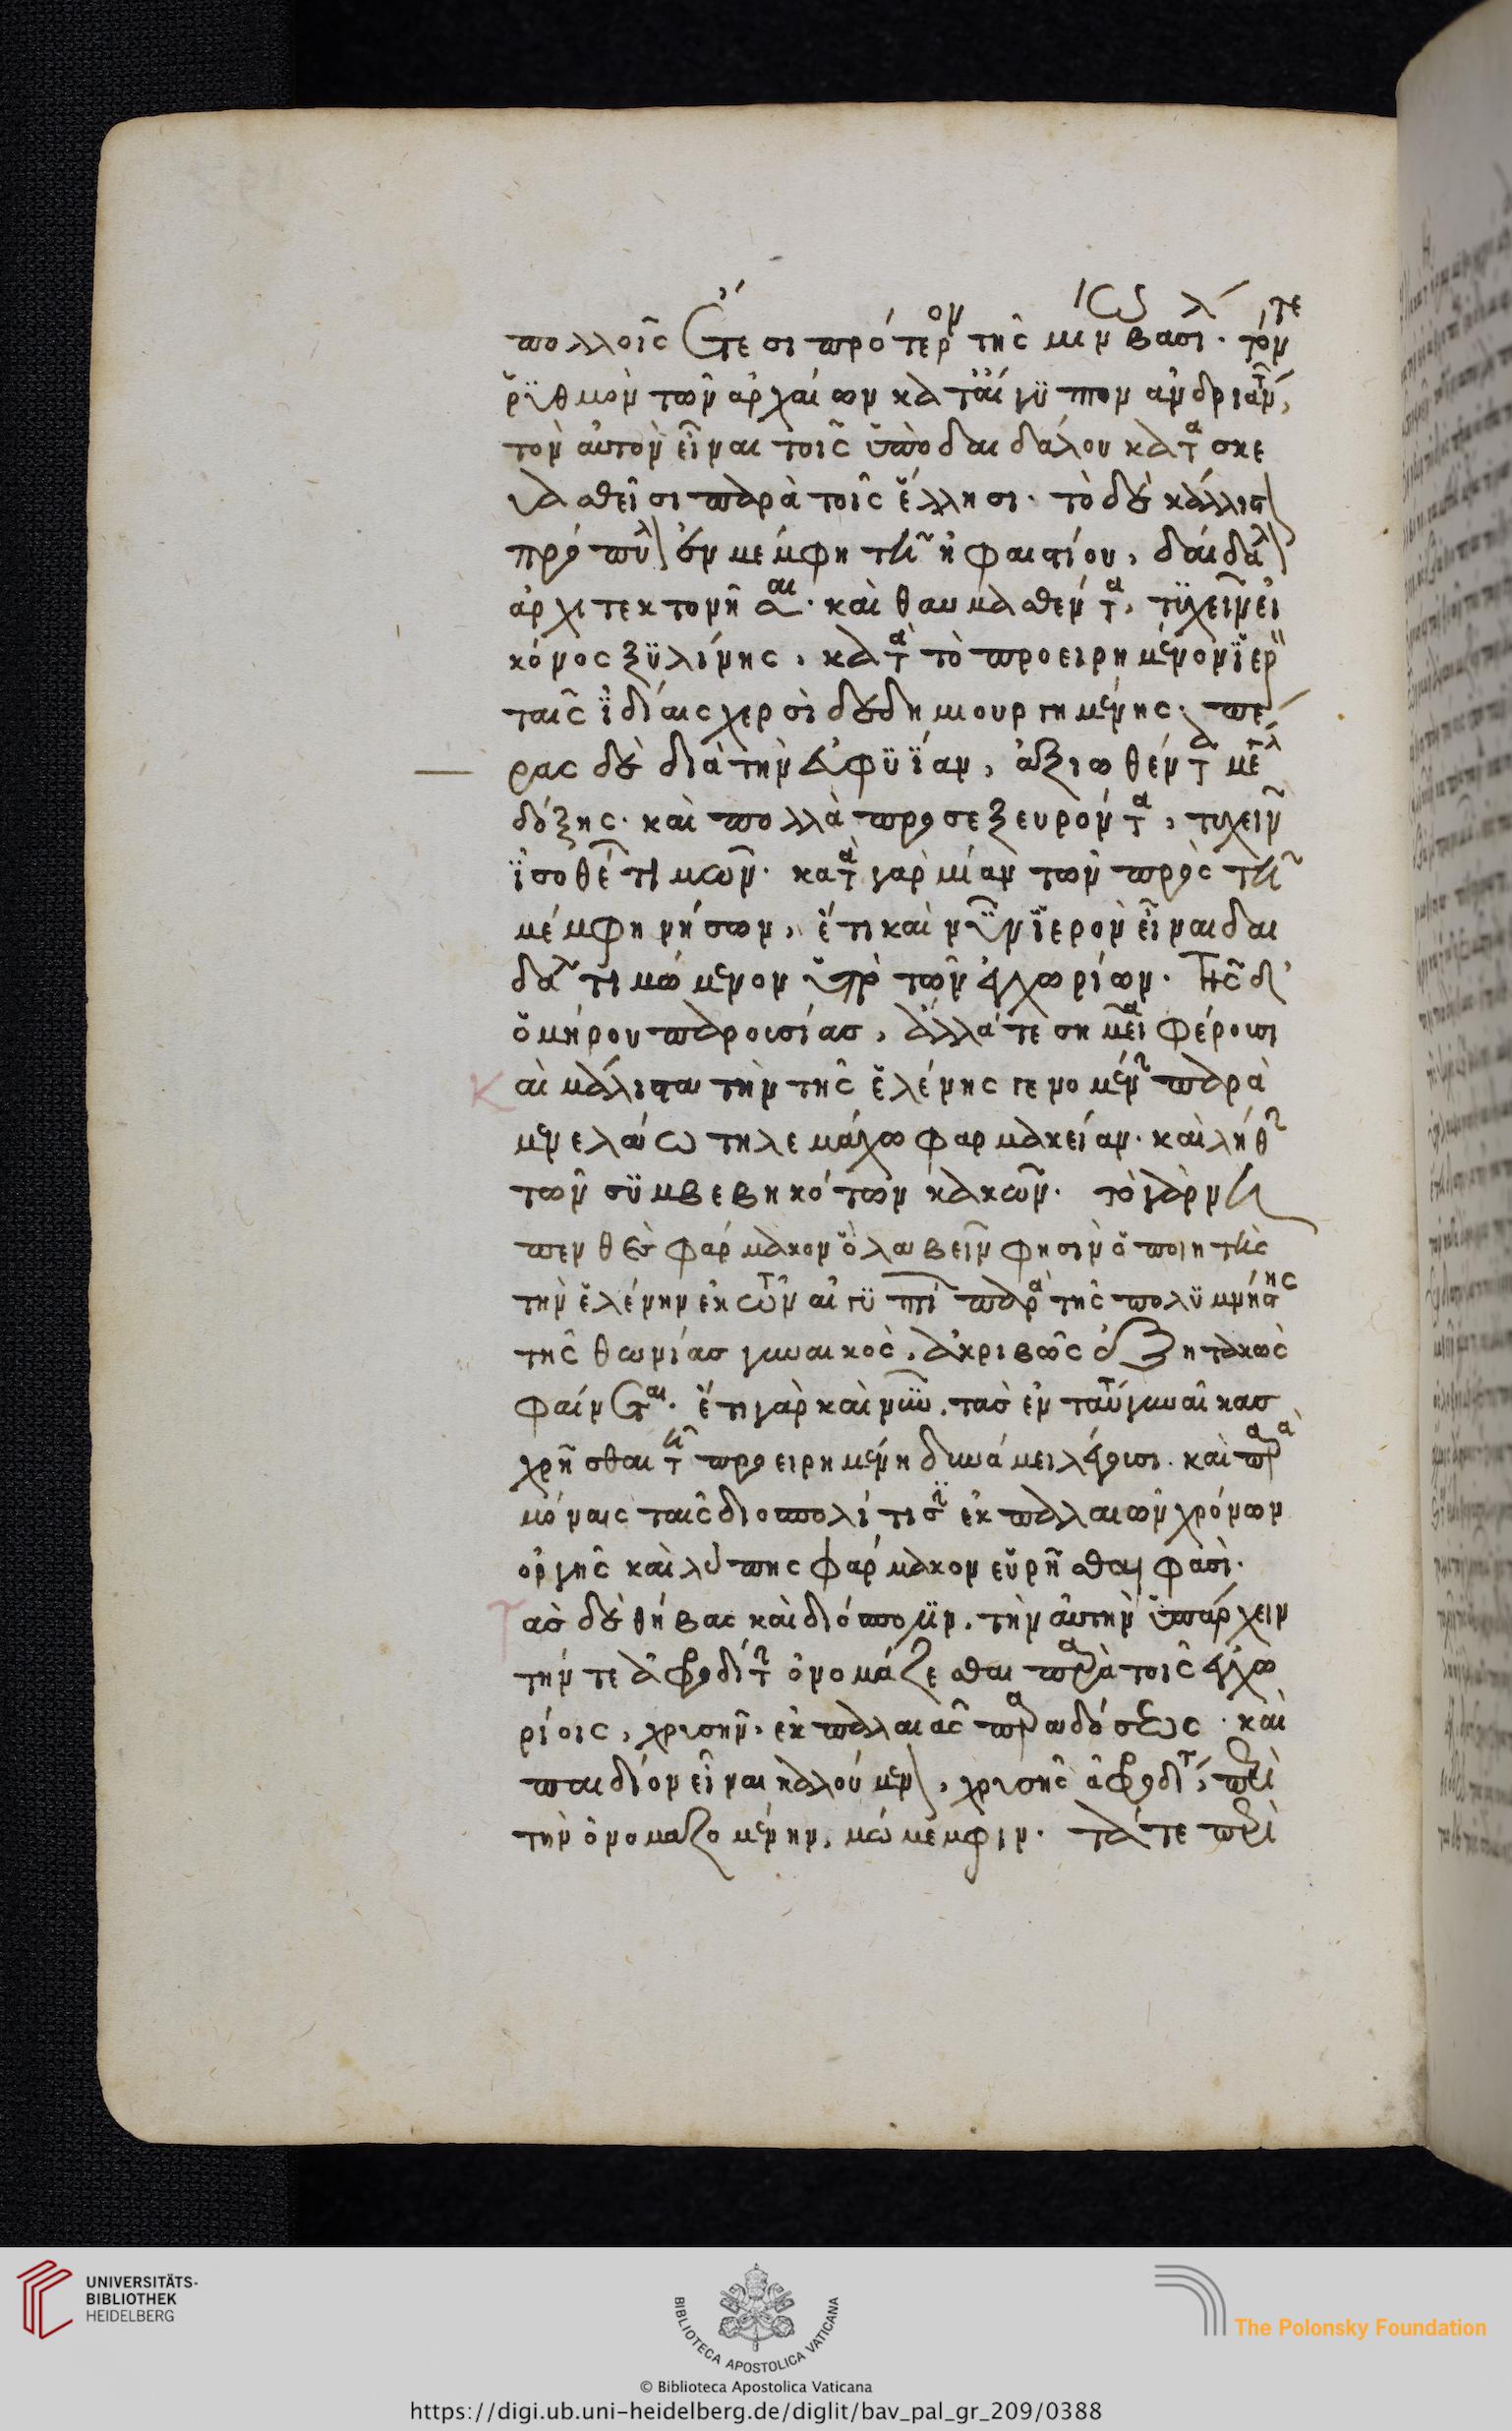 πολλοῖς ἔτεσι πρότερον τῆς μιν βασι. τόν τε
ῥϋθμὸν τῶν ἀρχαίων κατ' αἴγϋπτον ἀνδριάντ,
τὸν αὐτὸν εἶναι τοῖς ὑπὸ δαιδάλου κατασκε
υασθεῖσι παρὰ τοῖς ἕλλησι. τὸ δὲ κάλλιστ
πρόπυλ ἐν μέμφη τοῦ ἡφαιστίου, δαίδαλ
ἀρχιτεκτονῆσαι. καὶ θαυμασθέντα, τϋχεῖν εἰ
κόνος ξϋλίνης, κατὰ τὸ προειρημένον ἱερ
ταῖς ἰδίαις χερσὶ δεδημιουργημένης. πέ
ρας δὲ διὰ τὴν εὐφϋΐαν, ἀξιωθέντα μεγάλ
δόξης. καὶ πολλὰ προσεξευρόντα, τυχεῖν
ἰσοθέ τιμῶν. κατὰ γὰρ μίαν τῶν πρὸς τῆ
μέμφη νήσων, ἔτι καὶ νῦν ἱερὸν εἶναι δαι
δάλ τιμώμενον ὑπὸ τῶν ἐγχωρίων. Τῆς δ'
ὁμήρου παρουσίας, ἄλλά τε σημεῖα φέρουσι
Καὶ μάλιστα τὴν τῆς ἑλένης γενομένην παρὰ
μενελάω τηλεμάχω φαρμακείαν. καὶ λήθην
τῶν σϋμβεβηκότων κακῶν. τὸ γὰρ νη
πενθὲς φάρμακον ὃ λαβεῖν φησὶν ὁ ποιητὴς
τὴν ἑλένην ἐκ τῶν αἰγϋπτί παρὰ τῆς πολϋμνήστης
τῆς θωνίας γυναικὸς, ἀκριβῶς ἐξητακὼς
φαίνεται. ἔτι γὰρ καὶ νῦν, τὰς ἐν ταύτ γυναῖκας
χρῆσθαι τῆ προειρημένη δυνάμει λέγουσι. καὶ παρὰ
μόναις ταῖς διοσπολίτισιν ἐκ παλαιῶν χρόνων
ὀργῆς καὶ λύπης φάρμακον εὑρῆσθαι φασὶ.
Τὰς δὲ θήβας καὶ διόσπολιν, τὴν αὐτὴν ὑπάρχειν
τήν τε ἀφροδίτην ὀνομάζεσθαι παρὰ τοῖς ἐγχω
ρίοις, χρυσῆν, ἐκ παλαιᾶς παραδόσεως. καὶ
παιδίον εἶναι καλούμεν, χρυσῆς ἀφροδίτ, περὶ
τὴν ὀνομαζομένην, μώμεμφιν. τά τε περὶ
UNIVERSITÄTS-
BIBLIOTHEK
HEIDELBERG
BIBLIOTECA APOSTOLICA VATICANA
The Polonsky Foundation
© Biblioteca Apostolica Vaticana
https://digi.ub.uni-heidelberg.de/diglit/bav_pal_gr_209/0388